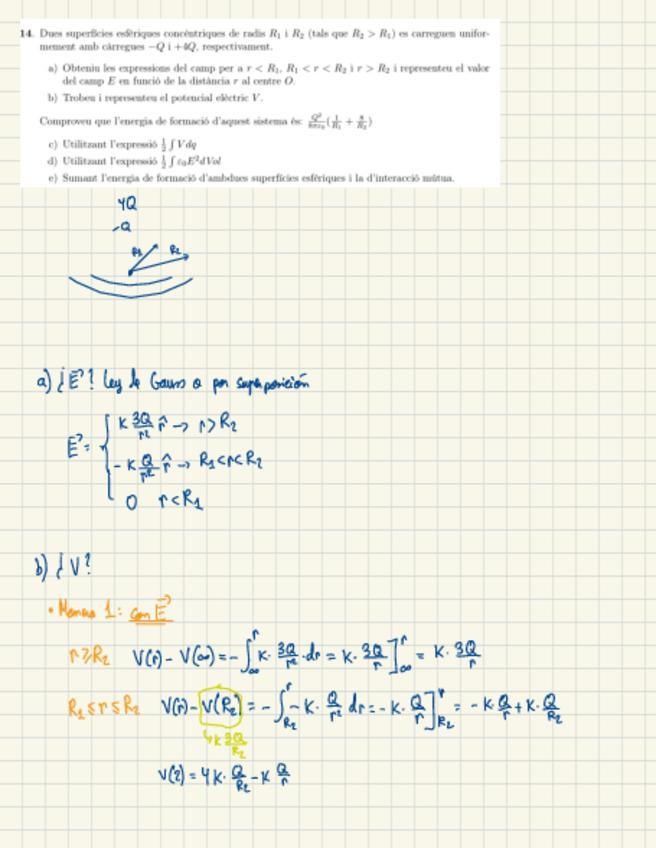 14. Dues superfícies esfèriques concèntriques de radis R₁ i R₂ (tals que R₂ > R₁) es carreguen unifor-
mement amb càrregues −Q i +4Q, respectivament.
a) Obteniu les expressions del camp per a r < R₁, R₁ < r < R₂ i r > R₂ i representeu el valor
del camp E en funció de la distància r al centre O.
b) Trobeu i representeu el potencial elèctric V.
Comproveu que l'energia de formació d'aquest sistema és: Q²/8πε₀ (1/R₁ + 8/R₂)
c) Utilitzant l'expressió ½ ∫ V dq
d) Utilitzant l'expressió ½ ∫ ε₀E² dVol
e) Sumant l'energia de formació d'ambdues superfícies esfèriques i la d'interacció mútua.
4Q
-Q
R₁ R₂
a) ¿E? Ley de Gauss o por superposición
K 3Q/r² r̂ → r > R₂
E =
- K Q/r² r̂ → R₁ < r < R₂
0 r < R₁
b) ¿V?
• Manera 1: con E
r ≥ R₂ V(r) - V(∞) = - ∫_∞^r K · 3Q/r² · dr = K · 3Q/r ]_∞^r = K · 3Q/r
R₁ ≤ r ≤ R₂ V(r) - V(R₂) = - ∫_R₂^r - K · Q/r² dr = - K · Q/r ]_R₂^r = - K · Q/r + K · Q/R₂
↳ K 3Q/R₂
V(2) = 4K · Q/R₂ - K Q/r